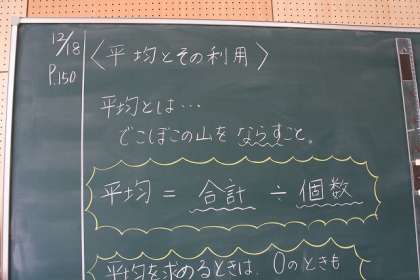 12/18
P.150
〈平均とその利用〉
平均とは…
でこぼこの山をならすこと。
平均 = 合計 ÷ 個数
平均を求めるときは、0のときも